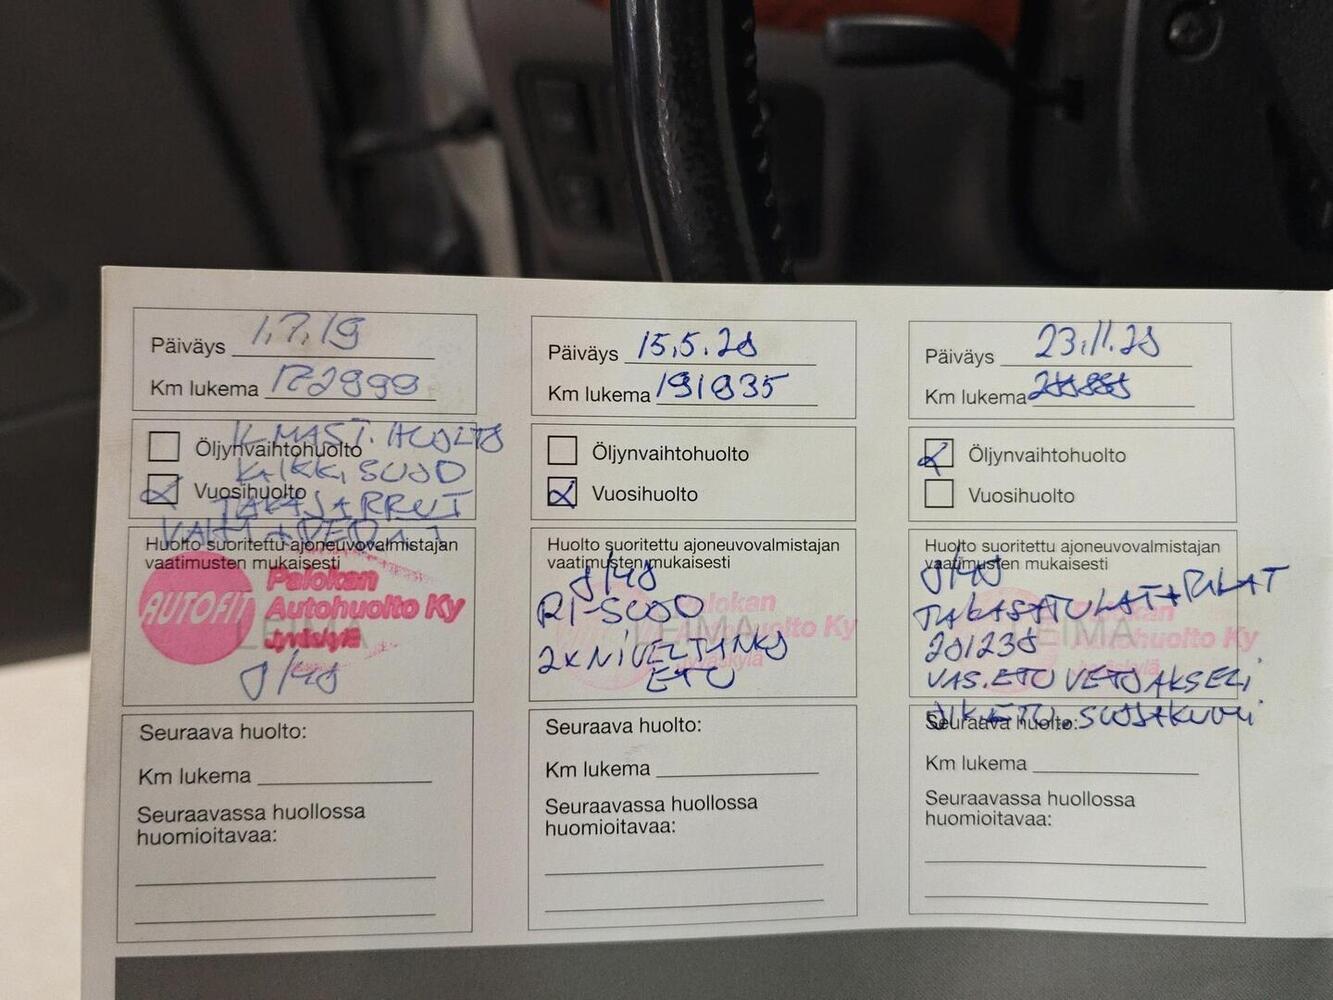 Päiväys 1.7.19
Km lukema 172999
Öljynvaihtohuolto
Vuosihuolto
ILMAST. HUOLTO
KAIKKI SUOD
TAKAJARRUT
Huolto suoritettu ajoneuvovalmistajan
vaatimusten mukaisesti
AUTOFIT
Palokan
Autohuolto Ky
Jyväskylä
LEIMA
Seuraava huolto:
Km lukema
Seuraavassa huollossa
huomioitavaa:
Päiväys 15.5.20
Km lukema 191935
Öljynvaihtohuolto
Vuosihuolto
Huolto suoritettu ajoneuvovalmistajan
vaatimusten mukaisesti
RI-SUOD
2x NIVELTANKO
ETU
LEIMA
Palokan
Autohuolto Ky
Jyväskylä
Seuraava huolto:
Km lukema
Seuraavassa huollossa
huomioitavaa:
Päiväys 23.11.20
Km lukema
Öljynvaihtohuolto
Vuosihuolto
Huolto suoritettu ajoneuvovalmistajan
vaatimusten mukaisesti
TAKASATULAT+PALAT
201238
VAS. ETU VETOAKSELI
OIK. ETU. SUOJAKUMI
LEIMA
Palokan
Autohuolto Ky
Jyväskylä
Seuraava huolto:
Km lukema
Seuraavassa huollossa
huomioitavaa: